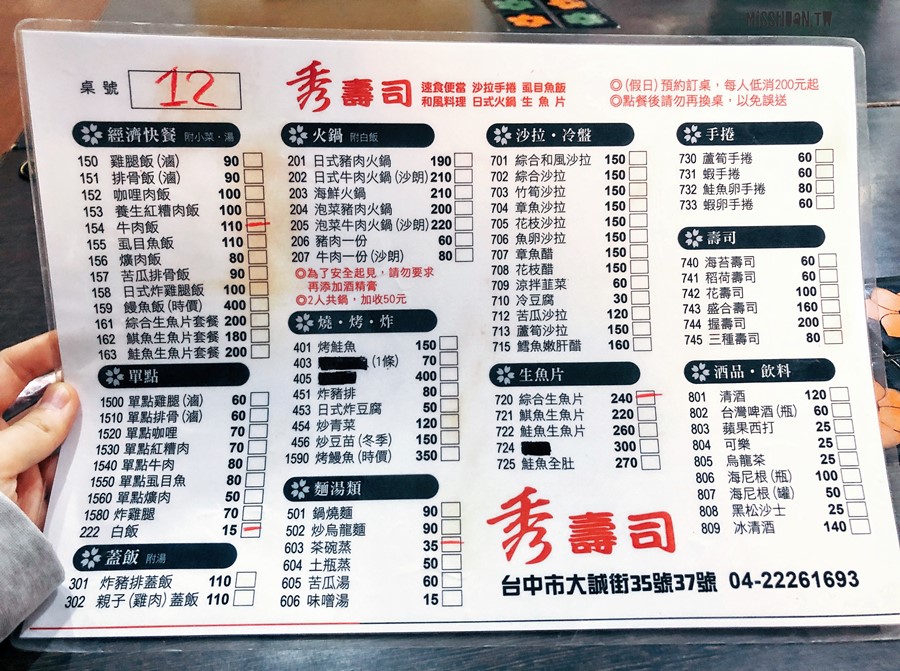 MISSHUAN.TW
桌號 12
秀壽司
速食便當 沙拉手捲 虱目魚飯
和風料理 日式火鍋 生魚片
◎(假日)預約訂桌，每人低消200元起
◎點餐後請勿再換桌，以免誤送
經濟快餐 附小菜・湯
150 雞腿飯(滷) 90
151 排骨飯(滷) 90
152 咖哩肉飯 100
153 養生紅糟肉飯 100
154 牛肉飯 110
155 虱目魚飯 110
156 爌肉飯 80
157 苦瓜排骨飯 90
158 日式炸雞腿飯 100
159 鰻魚飯(時價) 400
161 綜合生魚片套餐 200
162 鯕魚生魚片套餐 180
163 鮭魚生魚片套餐 200
單點
1500 單點雞腿(滷) 60
1510 單點排骨(滷) 60
1520 單點咖哩 70
1530 單點紅糟肉 70
1540 單點牛肉 80
1550 單點虱目魚 80
1560 單點爌肉 50
1580 炸雞腿 70
222 白飯 15
蓋飯 附湯
301 炸豬排蓋飯 110
302 親子(雞肉)蓋飯 110
火鍋 附白飯
201 日式豬肉火鍋 190
202 日式牛肉火鍋(沙朗) 210
203 海鮮火鍋 210
204 泡菜豬肉火鍋 200
205 泡菜牛肉火鍋(沙朗) 220
206 豬肉一份 60
207 牛肉一份(沙朗) 80
◎為了安全起見，請勿要求
再添加酒精膏
◎2人共鍋，加收50元
燒・烤・炸
401 烤鮭魚 150
403 (1條) 70
405 400
451 炸豬排 80
453 日式炸豆腐 50
454 炒青菜 120
456 炒豆苗(冬季) 150
1590 烤鰻魚(時價) 350
麵湯類
501 鍋燒麵 90
502 炒烏龍麵 90
603 茶碗蒸 35
604 土瓶蒸 50
605 苦瓜湯 60
606 味噌湯 15
沙拉・冷盤
701 綜合和風沙拉 150
702 綜合沙拉 150
703 竹筍沙拉 150
704 章魚沙拉 150
705 花枝沙拉 150
706 魚卵沙拉 150
707 章魚醋 150
708 花枝醋 150
709 涼拌韭菜 60
710 冷豆腐 30
712 苦瓜沙拉 120
713 蘆筍沙拉 150
715 鱈魚嫩肝醋 160
生魚片
720 綜合生魚片 240
721 鯕魚生魚片 220
722 鮭魚生魚片 260
724 300
725 鮭魚全肚 270
手捲
730 蘆筍手捲 60
731 蝦手捲 60
732 鮭魚卵手捲 80
733 蝦卵手捲 60
壽司
740 海苔壽司 60
741 稻荷壽司 60
742 花壽司 100
743 盛合壽司 160
744 握壽司 200
745 三種壽司 80
酒品・飲料
801 清酒 120
802 台灣啤酒(瓶) 60
803 蘋果西打 25
804 可樂 25
805 烏龍茶 25
806 海尼根(瓶) 100
807 海尼根(罐) 50
808 黑松沙士 25
809 冰清酒 140
秀壽司
台中市大誠街35號37號 04-22261693